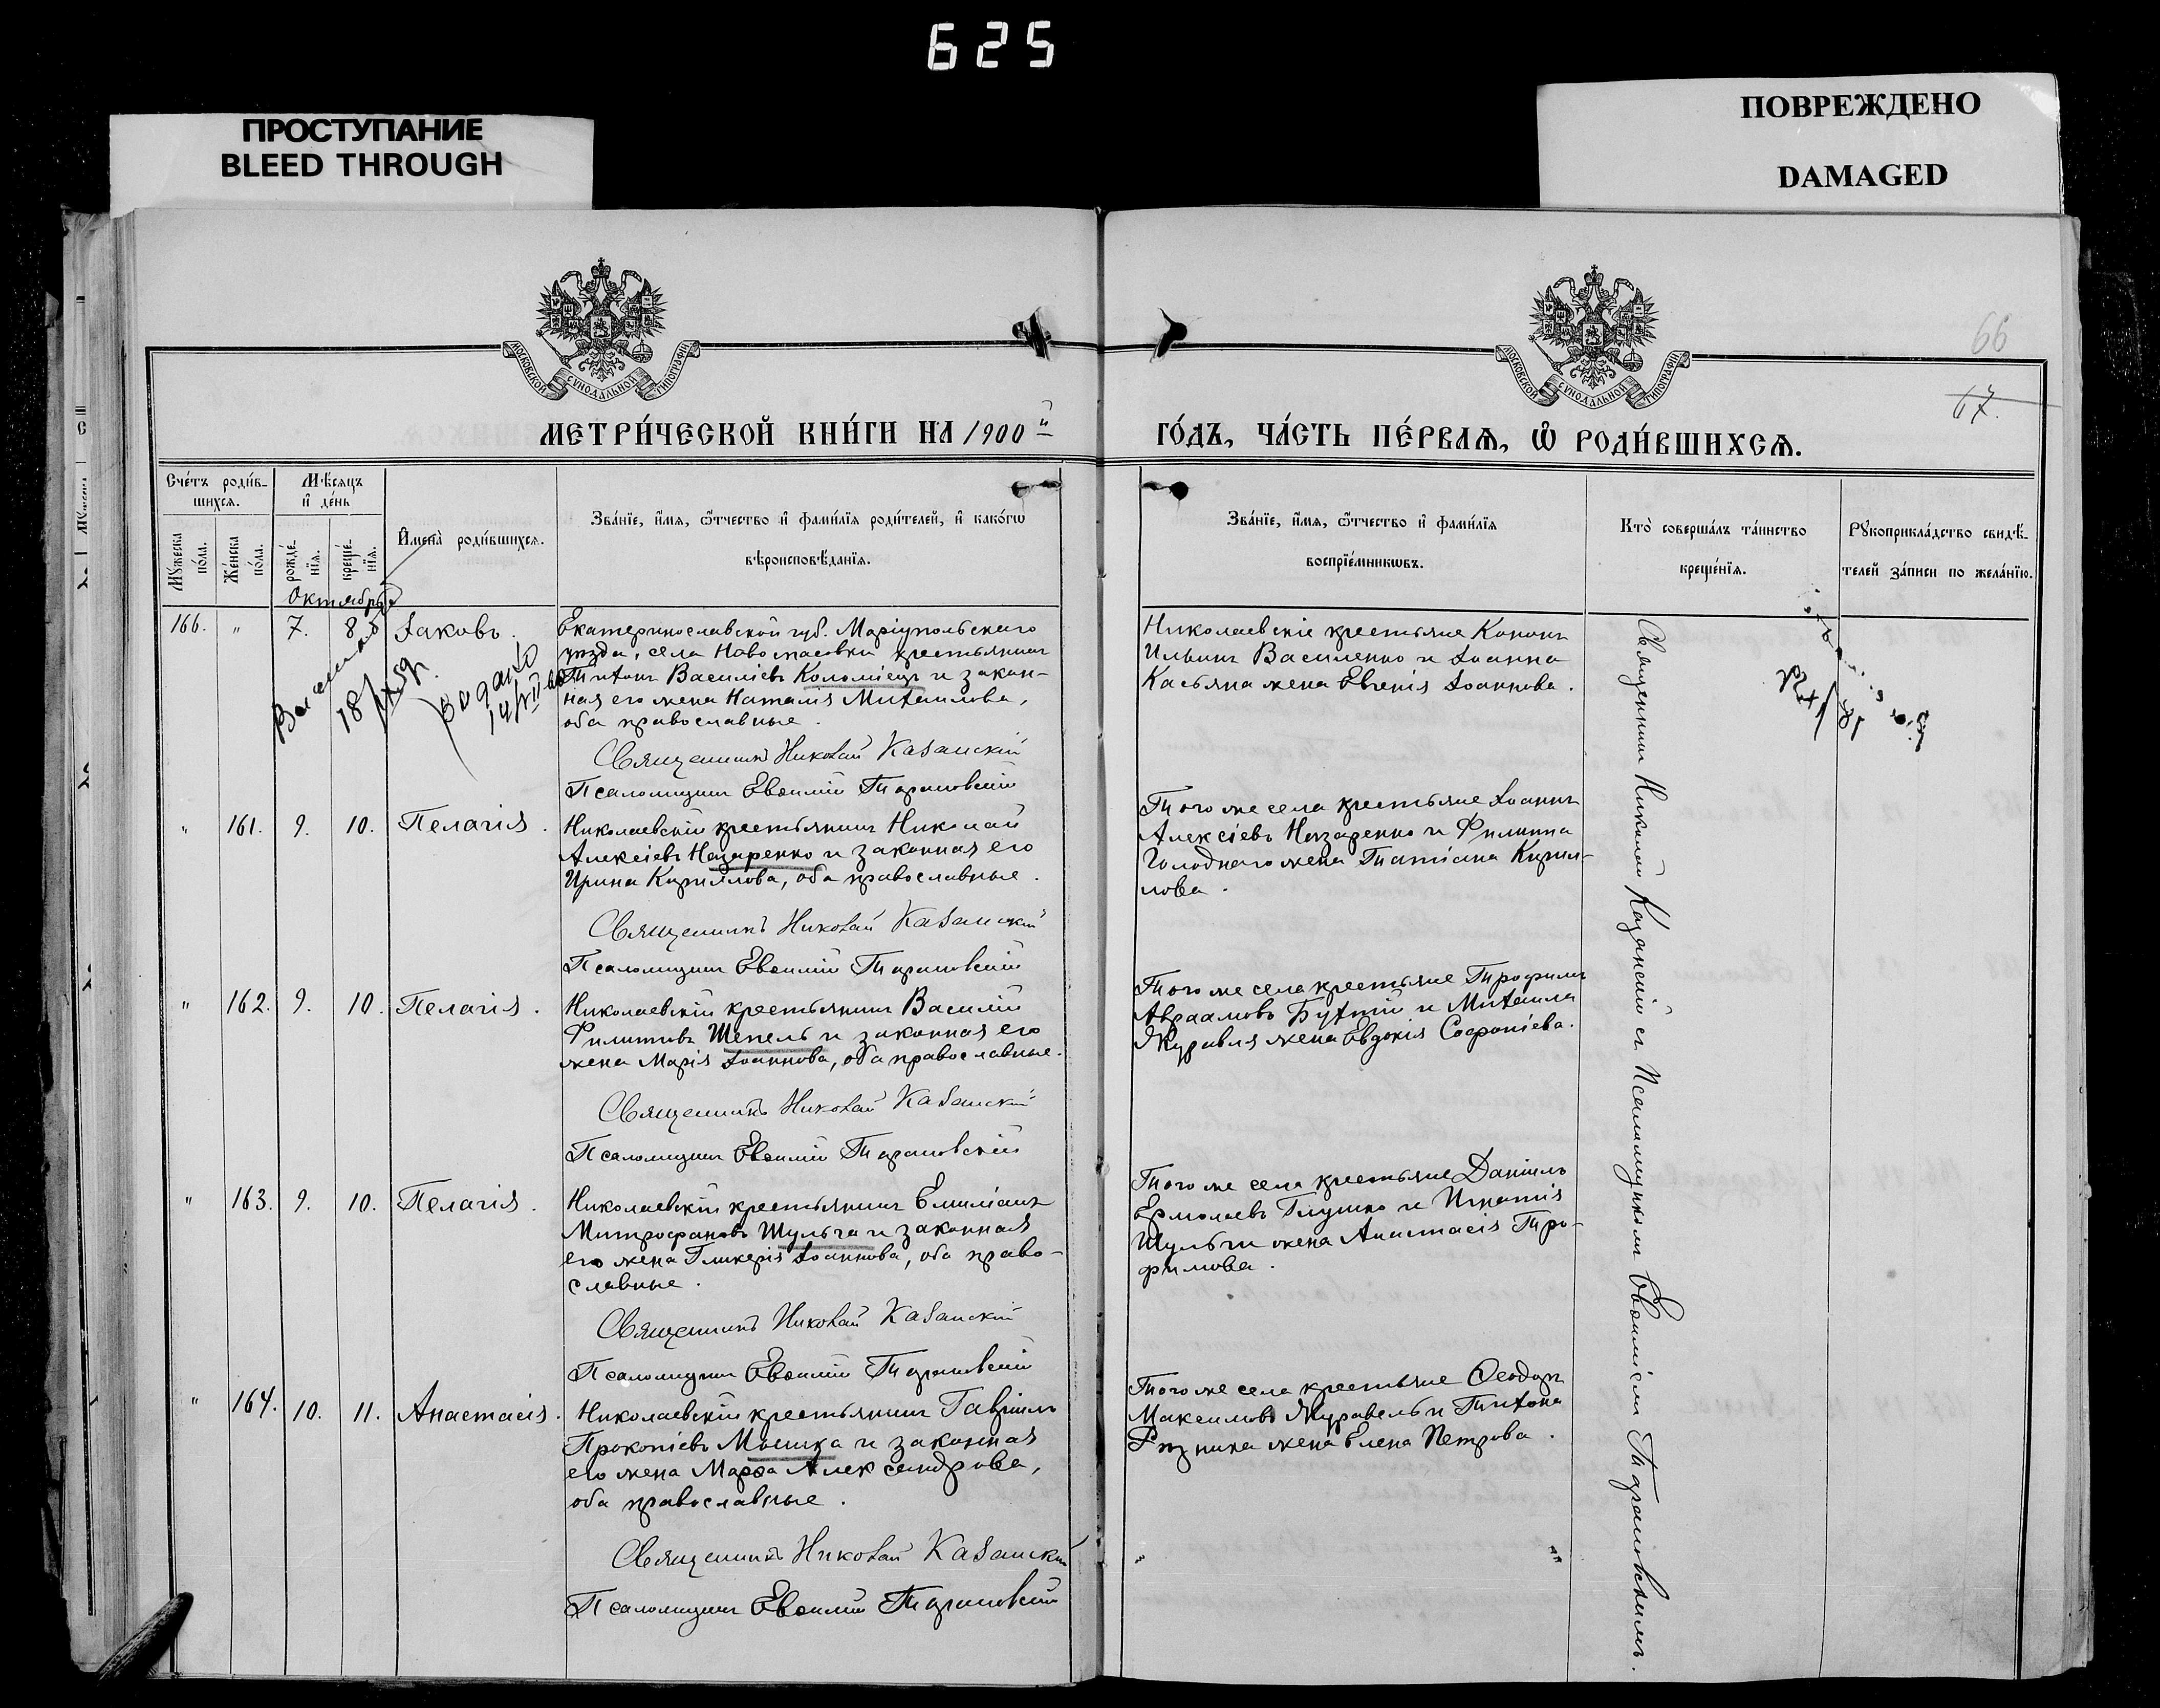 625
ПРОСТУПАНИЕ
BLEED THROUGH
ПОВРЕЖДЕНО
DAMAGED
МОСКОВСКОЙ СУНОДАЛЬНОЙ ТИПОГРАФІИ
МОСКОВСКОЙ СУНОДАЛЬНОЙ ТИПОГРАФІИ
66
67.
МЕТРИ́ЧЕСКОЙ КНИ́ГИ НА 1900й
ГО́ДЪ, ЧА́СТЬ ПЕ́РВАѦ, Ѽ РОДИ́ВШИХСѦ.
Сче́тъ роди́в-
шихся.
Мѣ́сяцъ
и҆ де́нь
Мꙋ́жеска
по́ла.
Же́нска
по́ла.
рожде́-
нїя.
креще́-
нїя.
И҆мена̀ роди́вшихся.
Зва́нїе, и҆́мя, ѻ҆́тчество и҆ фами́лїя роди́телей, и҆ како́гѡ
вѣроисповѣ́данїя.
Зва́нїе, и҆́мя, ѻ҆́тчество и҆ фами́лїя
воспрїе́мникѡвъ.
Кто̀ соверша́лъ та́инство
креще́нїя.
Рꙋкоприкла́дство свидѣ́-
телей за́писи по жела́нїю.
Октябрь
166. " 7. 8 Іаковъ.
Екатеринославской губ. Маріупольскаго
уѣзда, села Новоспасовки крестьянинъ
Титонъ Василіевъ Коломіецъ и закон-
ная его жена Наталія Михаилова,
оба православные.
Священникъ Николай Казанскій
Псаломщикъ Евѳимій Тарановскій
Николаевскіе крестьяне Кононъ
Ильинъ Василенко и Іоанна
Касьяна жена Евгенія Іоаннова.
" 161. 9. 10. Пелагія.
Николаевскій крестьянинъ Николай
Алексіевъ Назаренко и законная его
Ирина Кириллова, оба православные.
Священникъ Николай Казанскій
Псаломщикъ Евѳимій Тарановскій
Того же села крестьяне Іоаннъ
Алексіевъ Назаренко и Филиппа
Голоднаго жена Татіана Кирил-
лова.
" 162. 9. 10. Пелагія.
Николаевскій крестьянинъ Василій
Филиповъ Шепель и законная его
жена Марія Іоаннова, оба православные.
Священникъ Николай Казанскій
Псаломщикъ Евѳимій Тарановскій
Того же села крестьяне Трофимъ
Авраамовъ Бухтій и Михаила
Журавля жена Евдокія Софроніева.
" 163. 9. 10. Пелагія.
Николаевскій крестьянинъ Емиліанъ
Митрофановъ Шульга и законная
его жена Гликерія Іоаннова, оба право-
славные.
Священникъ Николай Казанскій
Псаломщикъ Евѳимій Тарановскій
Того же села крестьяне Даніилъ
Ермолаевъ Глушко и Игнатія
Шульги жена Анастасія Тро-
фимова.
" 164. 10. 11. Анастасія.
Николаевскій крестьянинъ Гавріилъ
Прокопіевъ Мышка и законная
его жена Марѳа Александрова,
оба православные.
Священникъ Николай Казанскій
Псаломщикъ Евѳимій Тарановскій
Того же села крестьяне Ѳеодоръ
Максимовъ Журавель и Титона
Рѣзника жена Елена Петрова.
Священникъ Николай Казанскій съ Псаломщикомъ Евѳиміемъ Тарановскимъ.